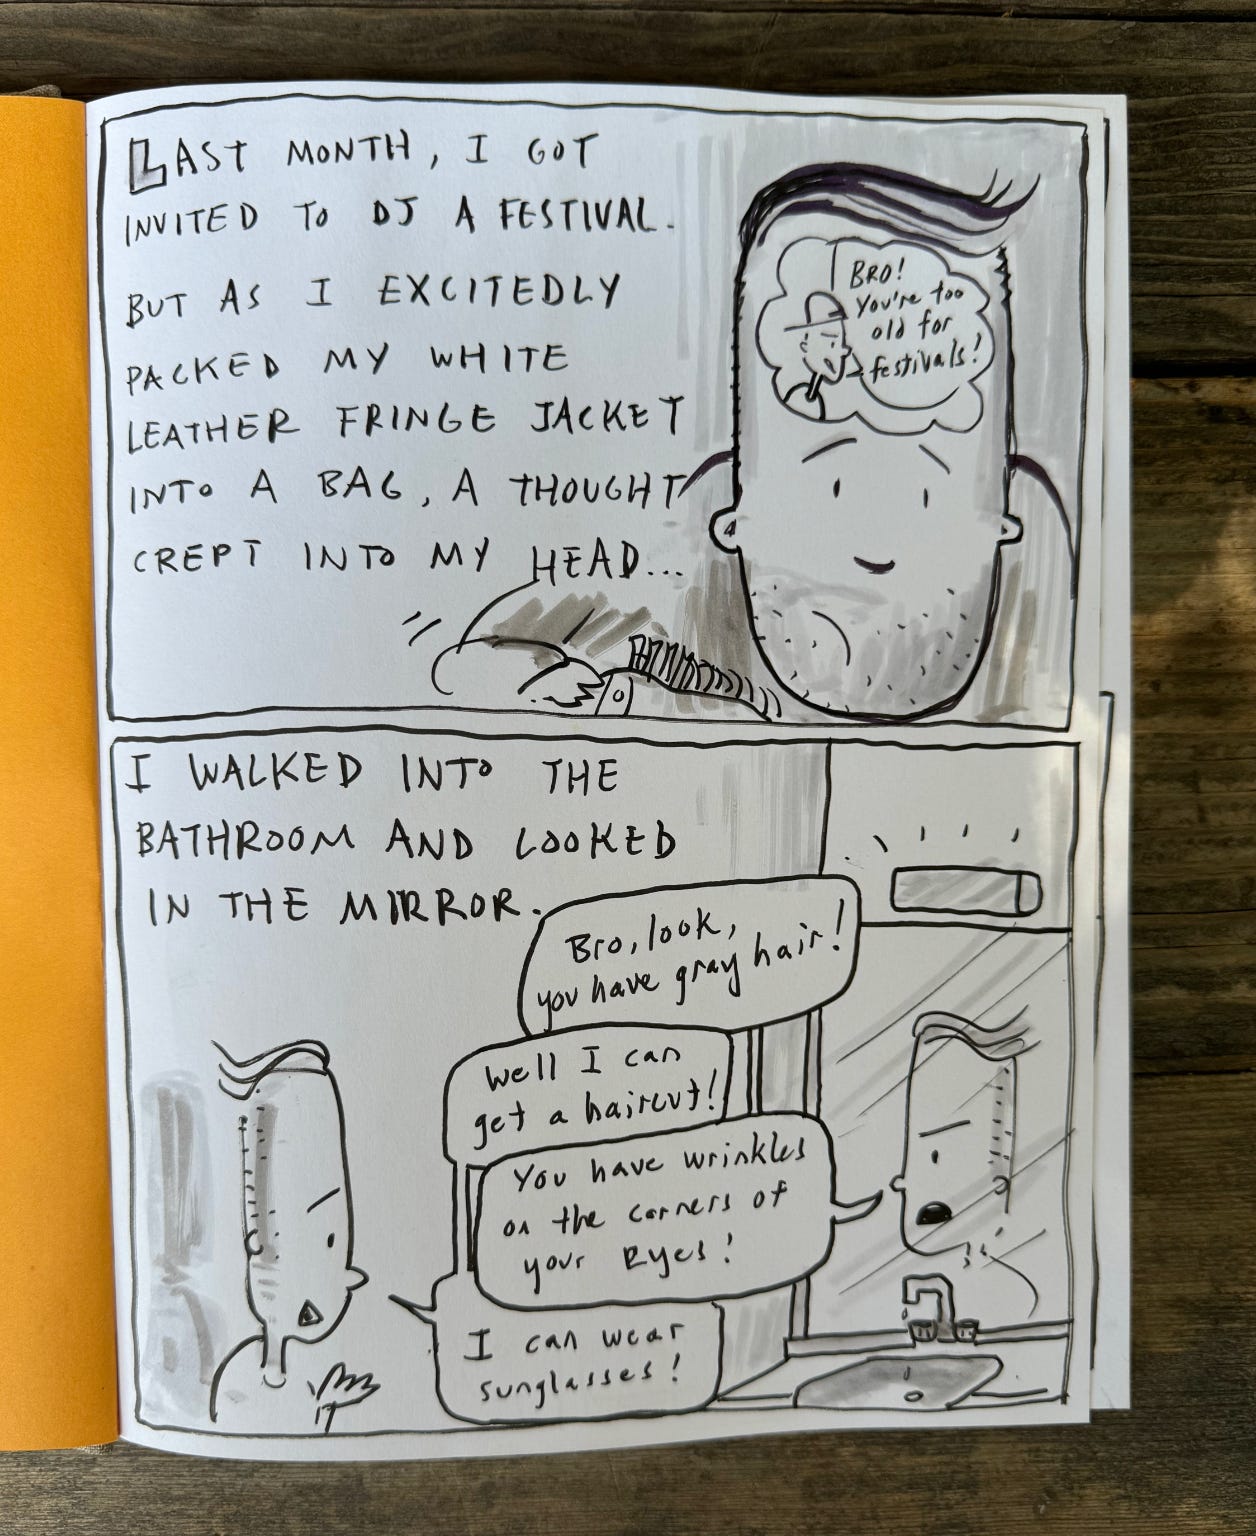 LAST MONTH, I GOT
INVITED TO DJ A FESTIVAL.
BUT AS I EXCITEDLY
PACKED MY WHITE
LEATHER FRINGE JACKET
INTO A BAG, A THOUGHT
CREPT INTO MY HEAD...
BRO!
You're too
old for
festivals!
I WALKED INTO THE
BATHROOM AND LOOKED
IN THE MIRROR.
Bro, look,
you have gray hair!
Well I can
get a haircut!
You have wrinkles
on the corners of
your Eyes!
I can wear
sunglasses!